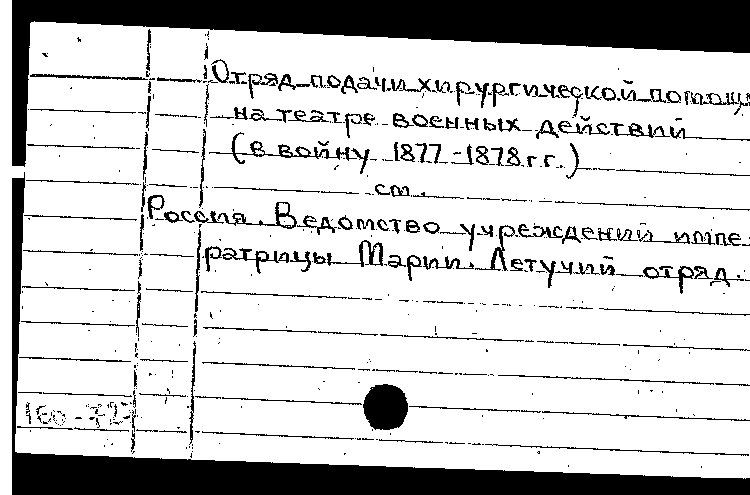 Отряд подачи хирургической помощи
на театре военных действий
(в войну 1877-1878 г.г.)
см.
Россия. Ведомство учреждений импе-
ратрицы Марии. Летучий отряд.
160-72